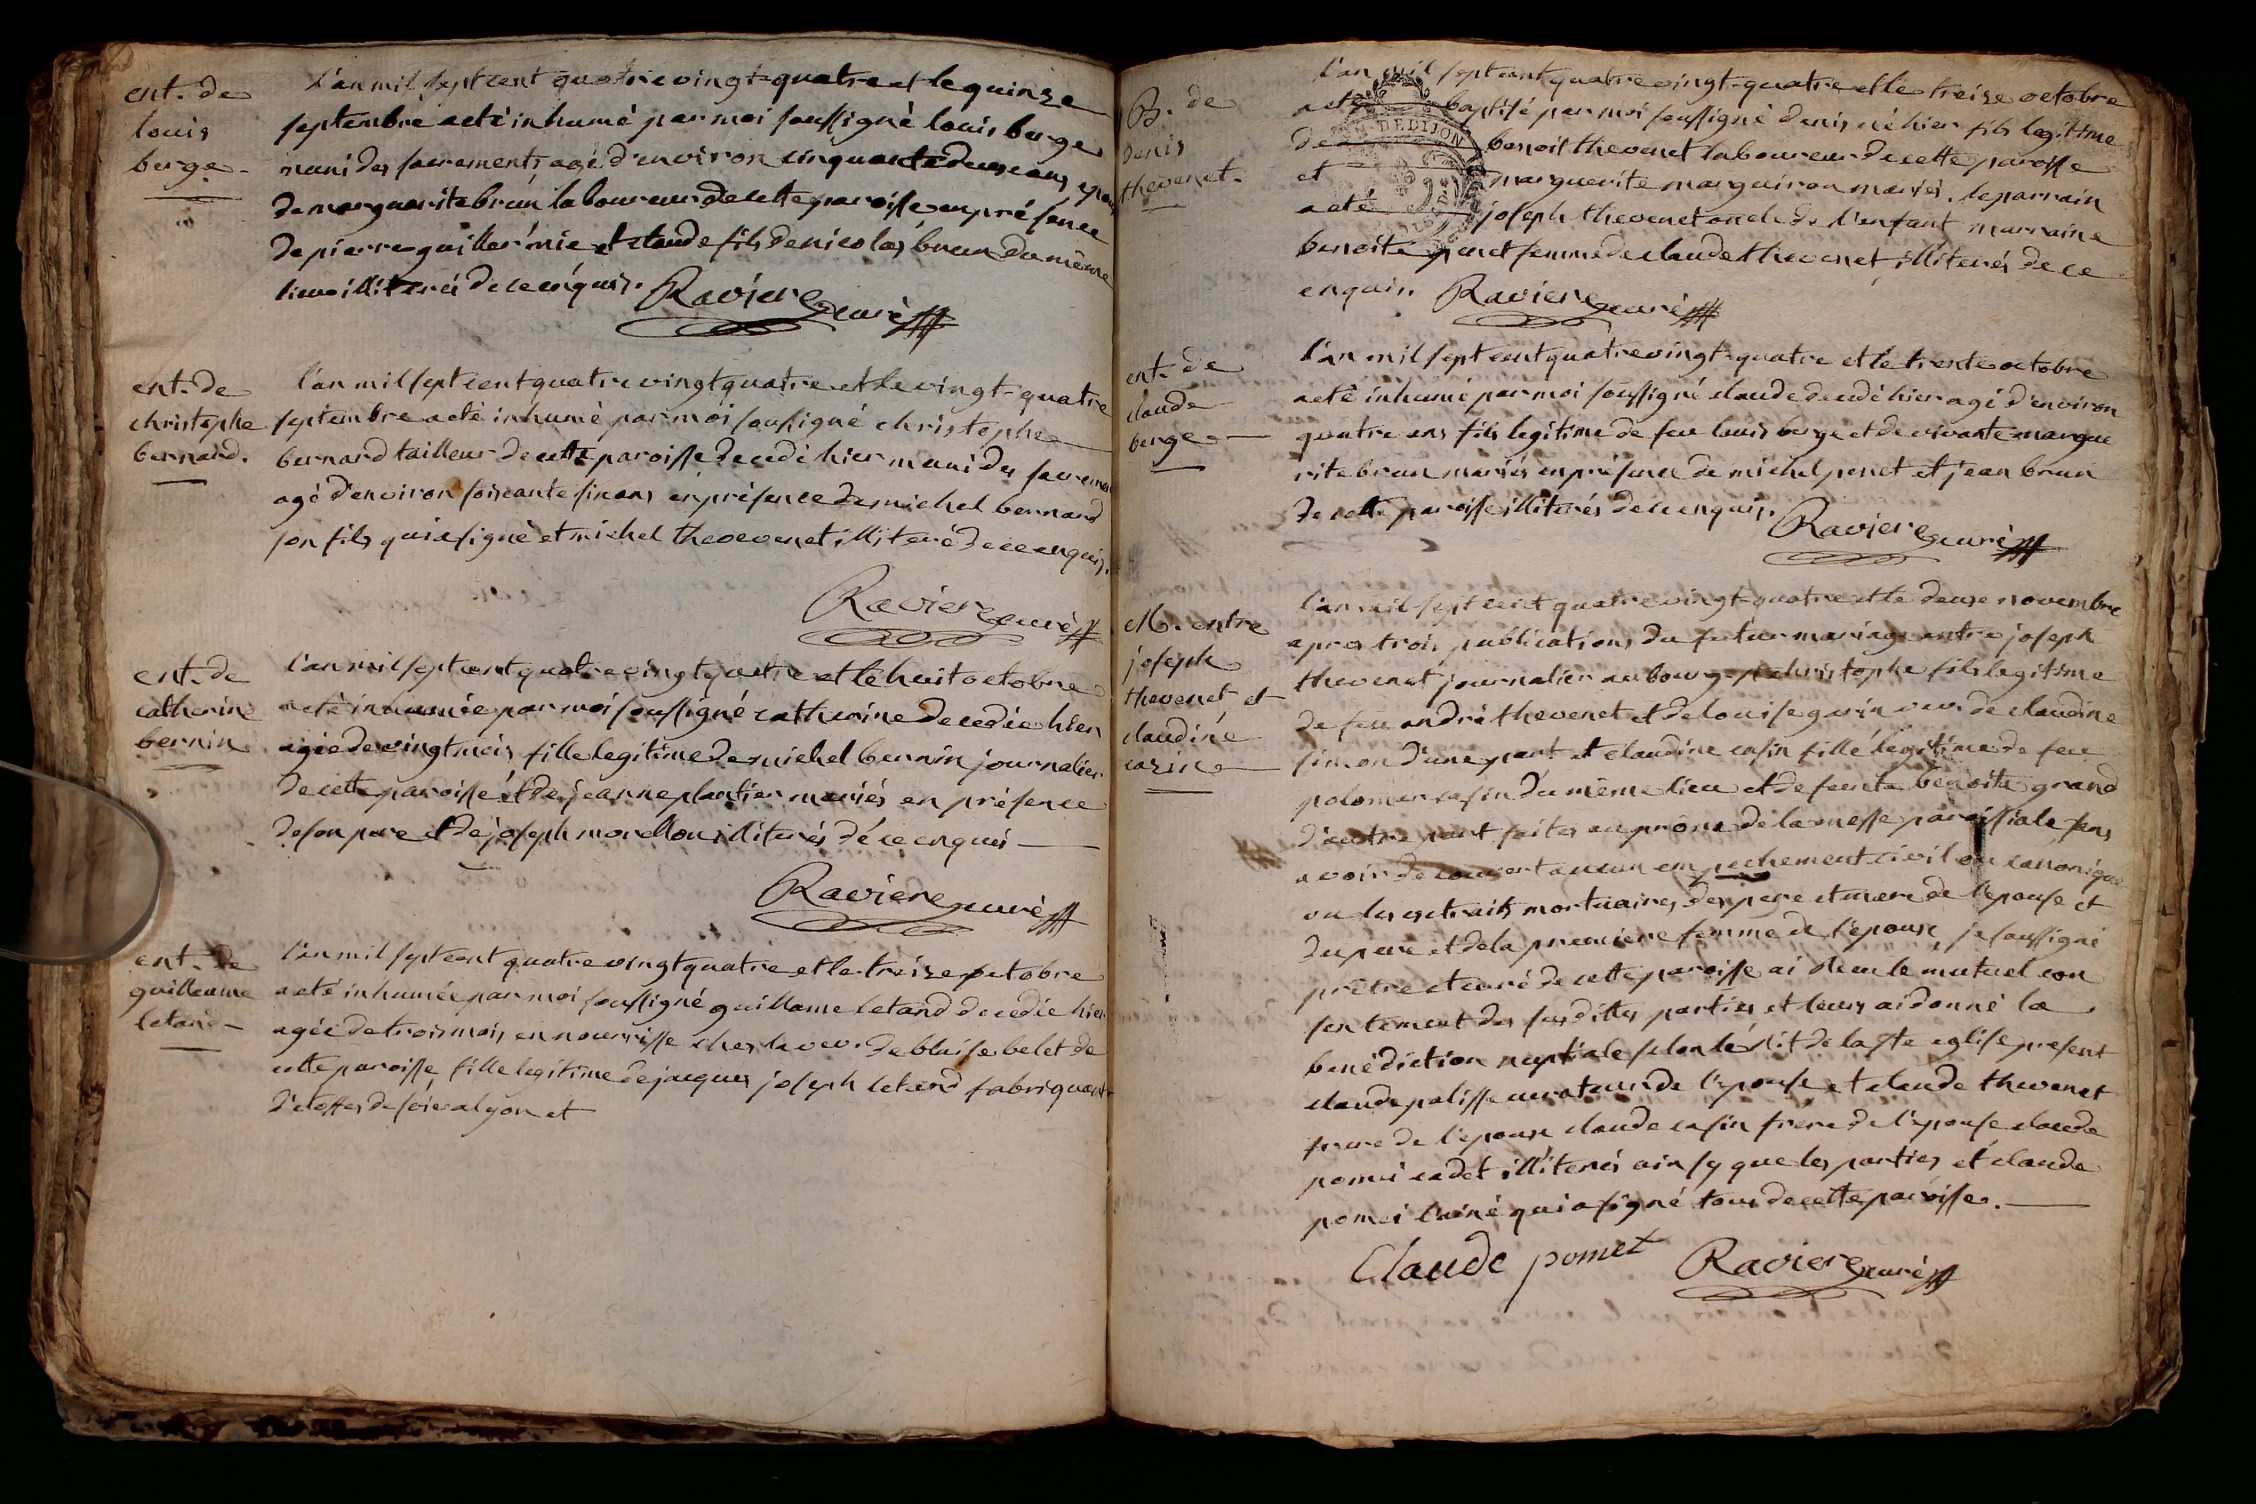 ent. de
louis
berge
L'an mil sept cent quatre vingt-quatre et le quinze
septembre a eté inhumé par moi soussigné louis berge
muni des sacrements, agé d'environ cinquante deux ans, epoux
de marguerite brun laboureur de cette paroisse en présence
de pierre guillermie et claude fils de nicolas brun du même
lieu illiterés de ce enquis. Raviere curé
ent. de
christophe
bernard.
l'an mil sept cent quatre vingt quatre et le vingt-quatre
septembre a eté inhumé par moi soussigné christophe
bernard tailleur de cette paroisse decedé hier muni des sacremens
agé d'environ soixante six ans en présence de michel bernard
son fils qui a signé et michel thevevenet illiteré de ce enquis.
Raviere curé
ent. de
catherine
bernin
l'an mil sept cent quatre vingt quatre et le huit octobre
a eté inhumée par moi soussigné catherine decedée hier
agée de vingt mois fille legitime de michel bernin journalier
de cette paroisse et de jeanne plantier mariés en présence
de son pere et de joseph morellon illiterés de ce enquis
Raviere curé
ent. de
guilleaume
letand
l'an mil sept cent quatre vingt quatre et le treize octobre
a eté inhumée par moi soussigné guillaume letand decedée hier
agée de trois mois en nourrisse chez la veu. de blaise belet de
cette paroisse, fille legitime de jacques joseph letand fabriquant
d'etoffes de soie a lyon et
B. de
denis
thevenet.
l'an mil sept cent quatre vingt-quatre et le treize octobre
a eté baptisé par moi soussigné denis né hier fils legitime
de benoit thevenet laboureur de cette paroisse
et marguerite marguiron mariés. le parrain
a eté joseph thevenet oncle de l'enfant marraine
benoite penet femme de claude thevenet, illiterés de ce
enquis. Raviere curé
DE DIJON
ent. de
claude
berge
l'an mil sept cent quatre vingt-quatre et le trente octobre
a eté inhumé par moi soussigné claude decedé hier agé d'environ
quatre ans fils legitime de feu louis berge et de vivante margue
rite brun mariés en présence de michel penet et jean brun
de cette paroisse illiterés de ce enquis. Raviere curé
M. entre
joseph
thevenet et
claudine
casin
l'an mil sept cent quatre vingt-quatre et le deuze novembre
apres trois publications du futur mariage entre joseph
thevenet journalier au bourg st christophe fils legitime
de feu andré thevenet et de louise garin veuf de claudine
simon d'une part et claudine casin fille legitime de feu
polomer casin du même lieu et de feue benoite grand
d'autre part faites au prône de la messe paroissiale sans
avoir decouvert aucun empechement civil ou canonique
vu les extraits mortuaires des pere et mere de l'epouse et
du pere et de la premiere femme de l'epoux, je soussigné
prêtre et curé de cette paroisse ai recu le mutuel con
sentement des susdittes parties et leurs ai donné la
benédiction nuptiale selon le rit de la ste eglise present
claude palisse curateur de l'epouse et claude thevenet
frere de l'epoux claude casin frere de l'epouse claude
pomei cadet illiterés ainsy que les parties et claude
pomei l'ainé qui a signé tous de cette paroisse.
Claude pomet Raviere curé